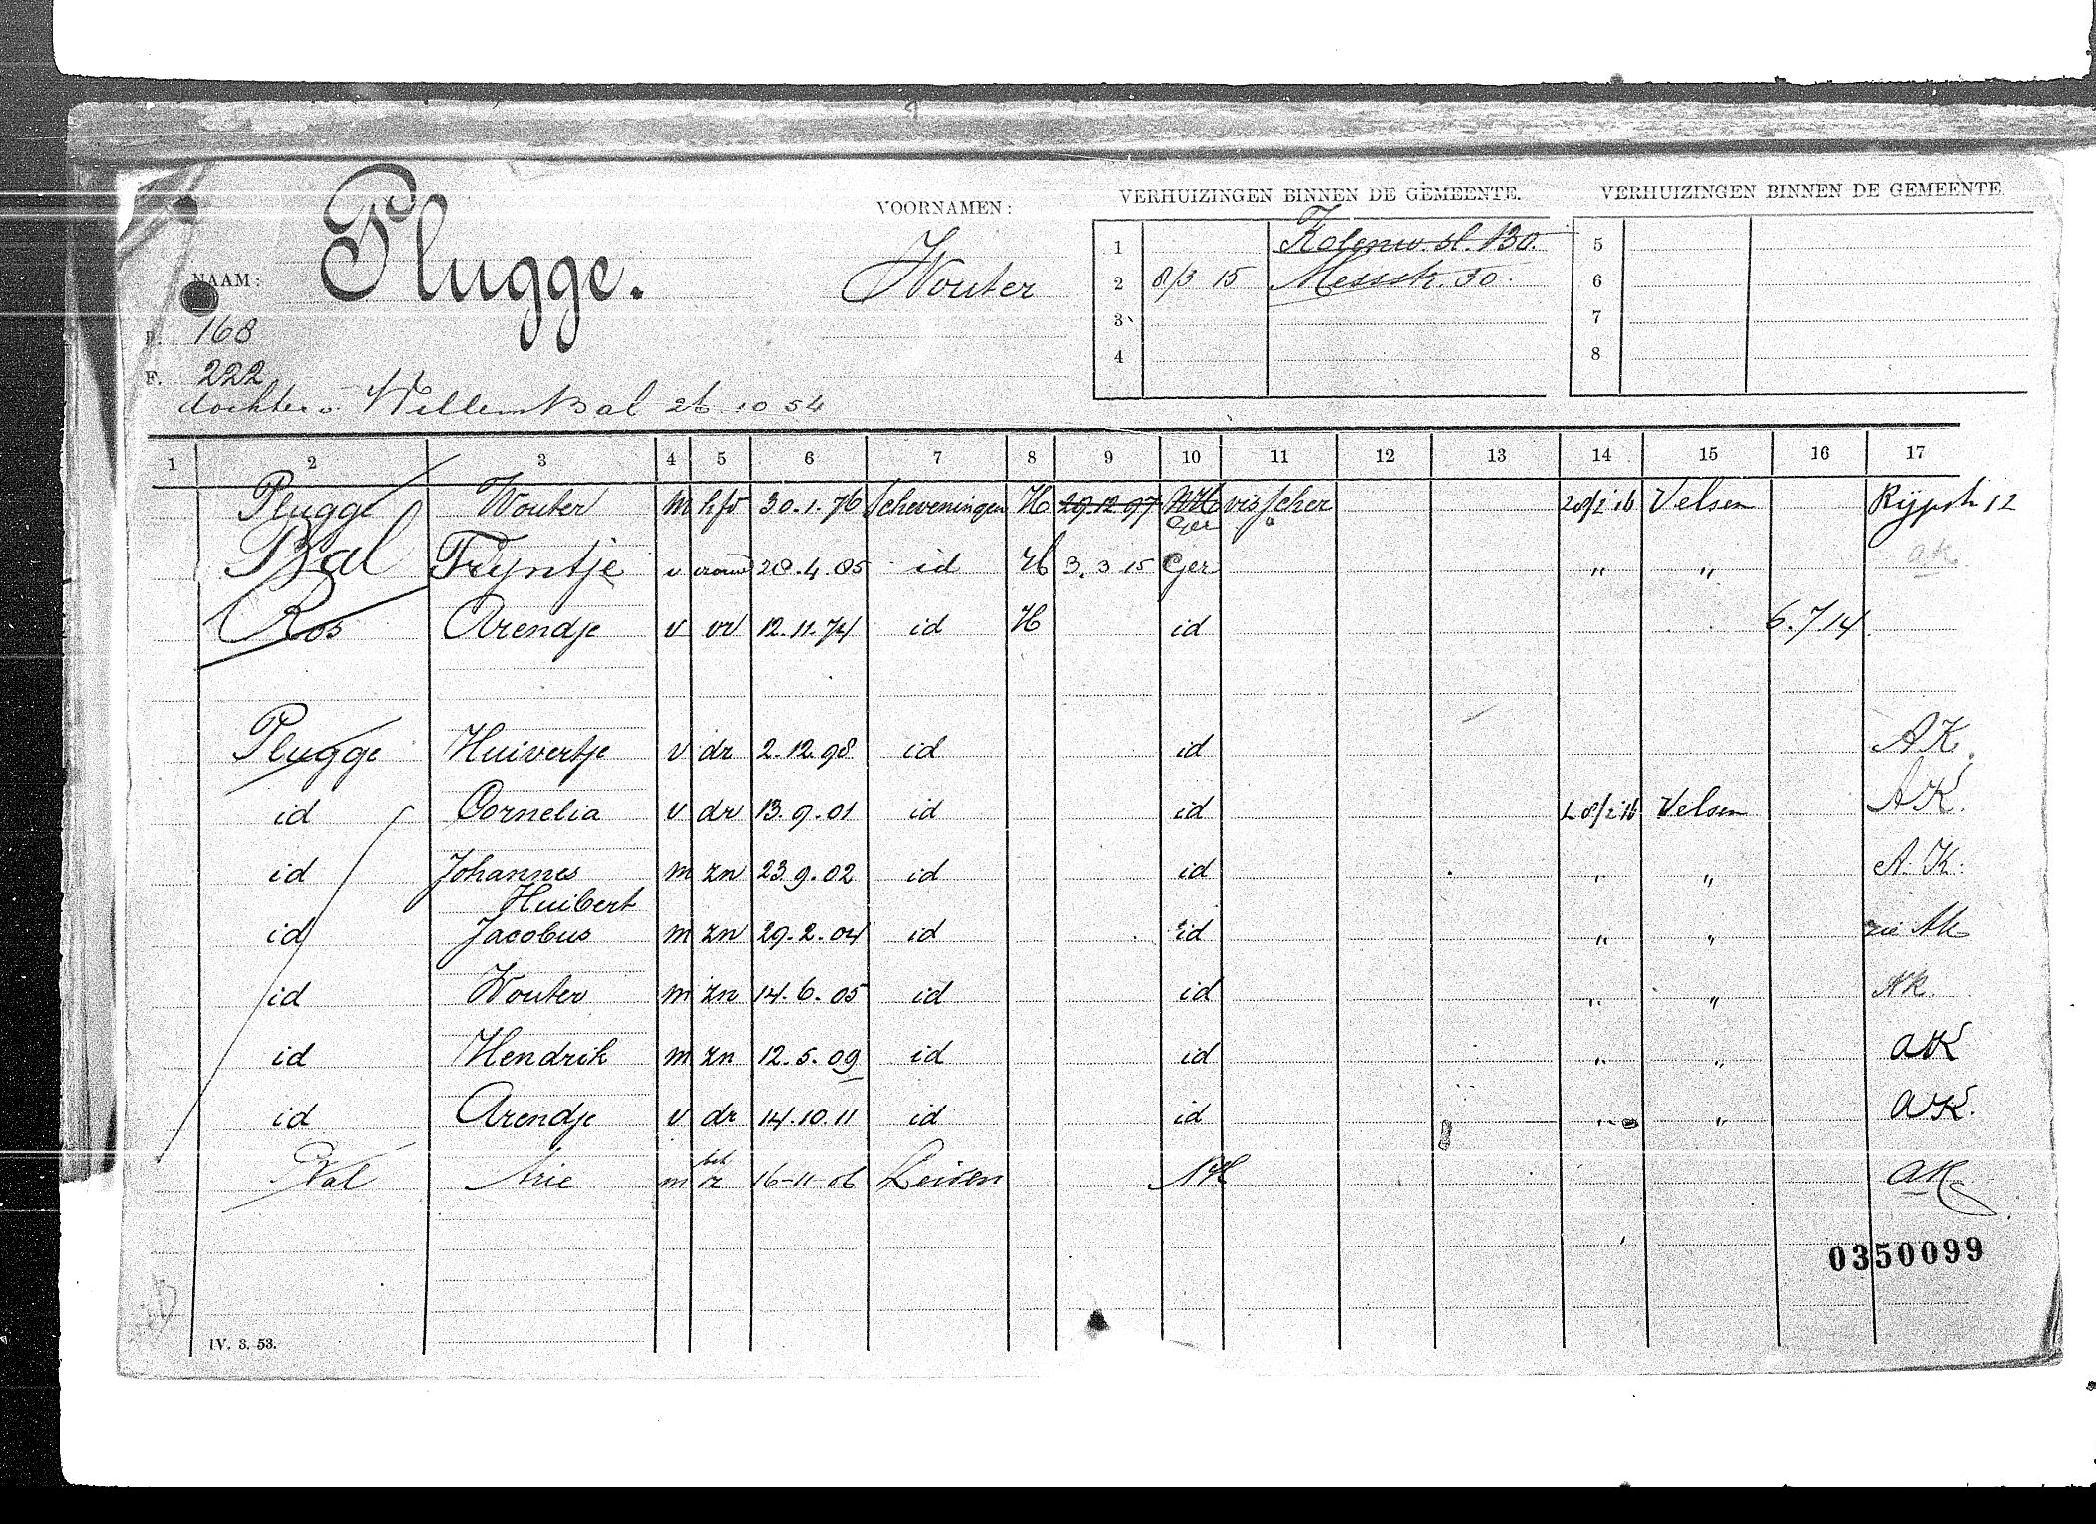 VOORNAMEN:
VERHUIZINGEN BINNEN DE GEMEENTE.
VERHUIZINGEN BINNEN DE GEMEENTE
NAAM: Plugge. Wouter
1 130.
2 8/3 15 30.
3
4
5
6
7
8
168
F. 222
dochter v. Willem Bal 26 10 54
1 2 3 4 5 6 7 8 9 10 11 12 13 14 15 16 17
Plugge Wouter m hfd 30.1.76 Scheveningen H 29.12.97 NH Ger visscher 28/2 16 Velsen 12
Bal Trijntje v vrouw 28.4.85 id H 3.3 15 Ger " " ak
Ros Arendje v vr 12.11.74 id H id 6.7/14
Plugge Huivertje v dr 2.12.98 id id AK.
id Cornelia v dr 13.9.01 id id 28/2 16 Velsen AK.
id Johannes m zn 23 9.02 id id " " A.K.
Huibert
id Jacobus m zn 29.2.04 id id " " zie AK
id Wouter m zn 14.6.05 id id " " AK.
id Hendrik m zn 12.5.09 id id " " AK
id Arendje v dr 14.10.11 id id " " AK.
Arie m 16-11-06 Leiden NH AK
0350099
IV. 3. 53.